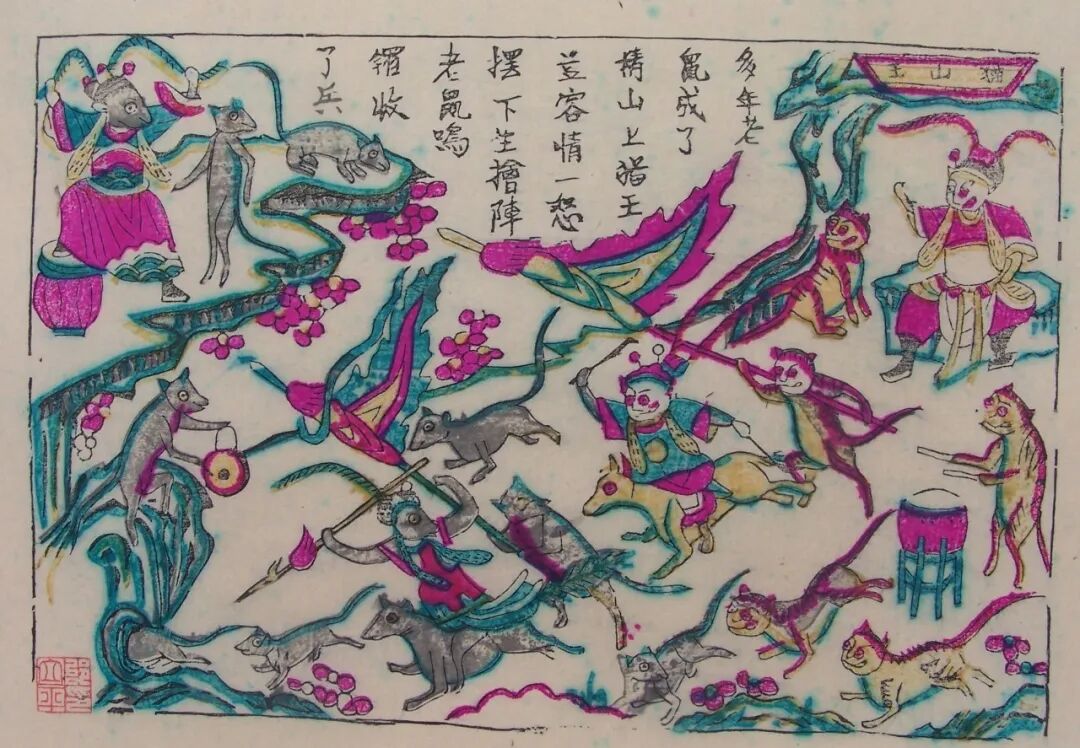 猫山王
多年老
鼠成了
精山上猫王
豈容情一怒
摆下生擒陣
老鼠鳴
鑼收
了兵